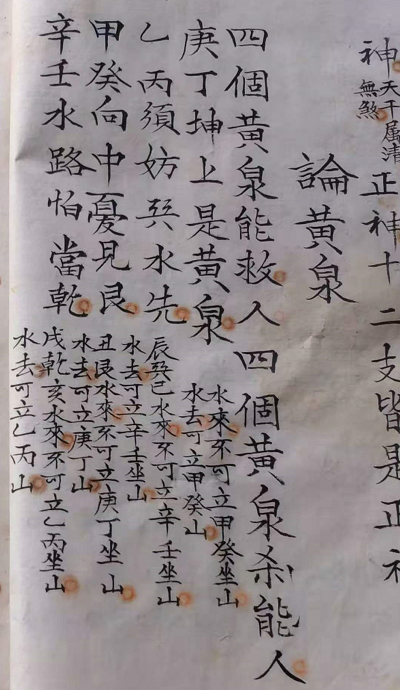 神
天干属清
無煞
正神十二支皆是正
論黃泉
四個黃泉能救人四個黃泉杀能人
庚丁坤上是黃泉
水來不可立甲癸坐山
水去可立甲癸山
乙丙須妨巽水先
辰巽巳水來不可立辛壬坐山
水去可立辛壬坐山
甲癸向中憂見艮
丑艮水來不可立庚丁坐山
水去可立庚丁山
辛壬水路怕當乾
戌乾亥水來不可立乙丙坐山
水去可立乙丙山